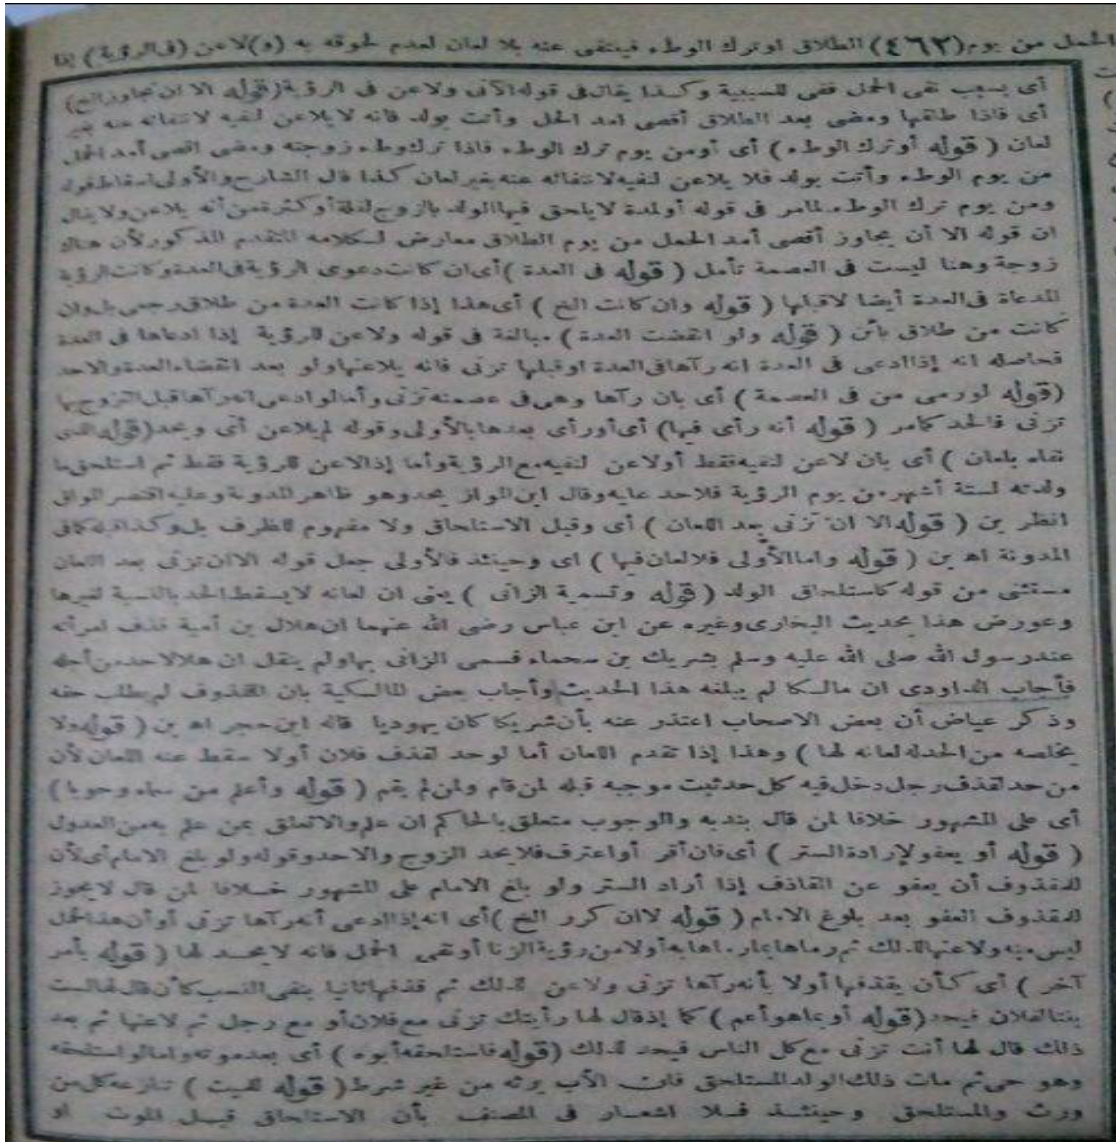 الحمل من يوم (٤٦٢) الطلاق او ترك الوطء فينتفى عنه بلا لعان لعدم لحوقه به (و) لاعن (فى الرؤية) إذا
أى بسبب نفى الحمل ففى للسببية وكذا يقال فى قوله الآتى ولاعن فى الرؤية (قوله الا ان تجاوز الخ)
أى فاذا طلقها ومضى بعد الطلاق أقصى امد الحمل وأتت بولد فانه لا يلاعن لنفيه لانتفائه عنه بغير
لعان ( قوله أو ترك الوطء ) أى أو من يوم ترك الوطء فاذا ترك وطء زوجته ومضى اقصى أمد الحمل
من يوم الوطء وأتت بولد فلا يلاعن لنفيه لانتفائه عنه بغير لعان كذا قال الشارح والأولى اسقاط قوله
ومن يوم ترك الوطء لما مر فى قوله أو لمدة لا يلحق فيها الولد بالزوج لقلة أو كثرة من أنه يلاعن ولا يقال
ان قوله الا أن يجاوز أقصى أمد الحمل من يوم الطلاق معارض لكلامه المتقدم المذكور لأن هناك
زوجة وهنا ليست فى العصمة تأمل ( قوله فى العدة ) أى ان كانت دعوى الرؤية فى العدة وكانت الرؤية
المدعاة فى العدة أيضا لا قبلها ( قوله وان كانت الخ ) أى هذا إذا كانت العدة من طلاق رجعى بل وان
كانت من طلاق بائن ( قوله ولو انقضت العدة ) مبالغة فى قوله ولاعن للرؤية إذا ادعاها فى العدة
فحاصله انه إذا ادعى فى العدة انه رآها فى العدة او قبلها تزنى فانه يلاعنها ولو بعد انقضاء العدة والا حد
(قوله لو رمى من فى العصمة ) أى بان رآها وهى فى عصمته تزنى وأما لو ادعى انه رآها قبل التزوج بها
تزنى فالحد كما مر ( قوله أنه رأى فيها) أى أو رأى بعدها بالأولى وقوله لم يلاعن أى ويحد (قوله الذى
نفاه بلعان ) أى بان لاعن لنفيه فقط أو لاعن لنفيه مع الرؤية وأما إذا لاعن للرؤية فقط ثم استلحق ما
ولدته لستة أشهر من يوم الرؤية فلا حد عليه وقال ابن المواز يحد وهو ظاهر المدونة وعليه اقتصر المواق
انظر بن ( قوله الا ان تزنى بعد اللعان ) أى وقبل الاستلحاق ولا مفهوم للظرف بل وكذا قبله كما فى
المدونة اه بن ( قوله واما الأولى فلا لعان فيها ) اى وحينئذ فالأولى جعل قوله الا ان تزنى بعد اللعان
مستثنى من قوله كاستلحاق الولد ( قوله وتسمية الزانى ) يعنى ان لعانه لا يسقط الحد بالنسبة لغيرها
وعورض هذا بحديث البخارى وغيره عن ابن عباس رضى الله عنهما ان هلال بن أمية قذف امرأته
عند رسول الله صلى الله عليه وسلم بشريك بن سحماء فسمى الزانى بها ولم ينقل ان هلالا حد من أجله
فأجاب الداودى ان مالكا لم يبلغه هذا الحديث وأجاب بعض المالكية بان المقذوف لم يطلب حقه
وذكر عياض أن بعض الاصحاب اعتذر عنه بأن شريكا كان يهوديا قاله ابن حجر اه بن ( قوله ولا
يخلصه من الحد له لعانه لها ) وهذا إذا تقدم اللعان أما لو حد لقذف فلان أولا سقط عنه اللعان لأن
من حد لقذف رجل دخل فيه كل حد ثبت موجبه قبله لمن قام ولمن لم يقم ( قوله وأعلم من سماه وجوبا )
أى على المشهور خلافا لمن قال بندبه والوجوب متعلق بالحاكم ان علم والا تعلق بمن علم به من العدول
( قوله أو يعفو لإرادة الستر ) أى فان أقر أو اعترف فلا يحد الزوج والا حد وقوله ولو بلغ الامام أى لأن
للمقذوف أن يعفو عن القاذف إذا أراد الستر ولو بلغ الامام على المشهور خلافا لمن قال لا يجوز
للمقذوف العفو بعد بلوغ الامام ( قوله لا ان كرر الخ ) أى انه إذا ادعى أنه رآها تزنى أو أن هذا الحمل
ليس منه ولاعنها لذلك ثم رماها بما رماها به أولا من رؤية الزنا أو نفى الحمل فانه لا يحد لها ( قوله بأمر
آخر ) أى كأن يقذفها أولا بأنه رآها تزنى ولاعن لذلك ثم قذفها ثانيا بنفى النسب كأن قال لها لست
بنتا لفلان فيحد (قوله أو بما هو أعم ) كما إذ قال لها رأيتك تزنى مع فلان أو مع رجل ثم لاعنها ثم بعد
ذلك قال لها أنت تزنى مع كل الناس فيحد لذلك (قوله فاستلحقه أبوه ) أى بعد موته واما لو استلحقه
وهو حى ثم مات ذلك الولد المستلحق فان الأب يرثه من غير شرط ( قوله لميت ) تنازعه كل من
ورث والمستلحق وحينئذ فلا اشعار فى المصنف بأن الاستلحاق قبل الموت او